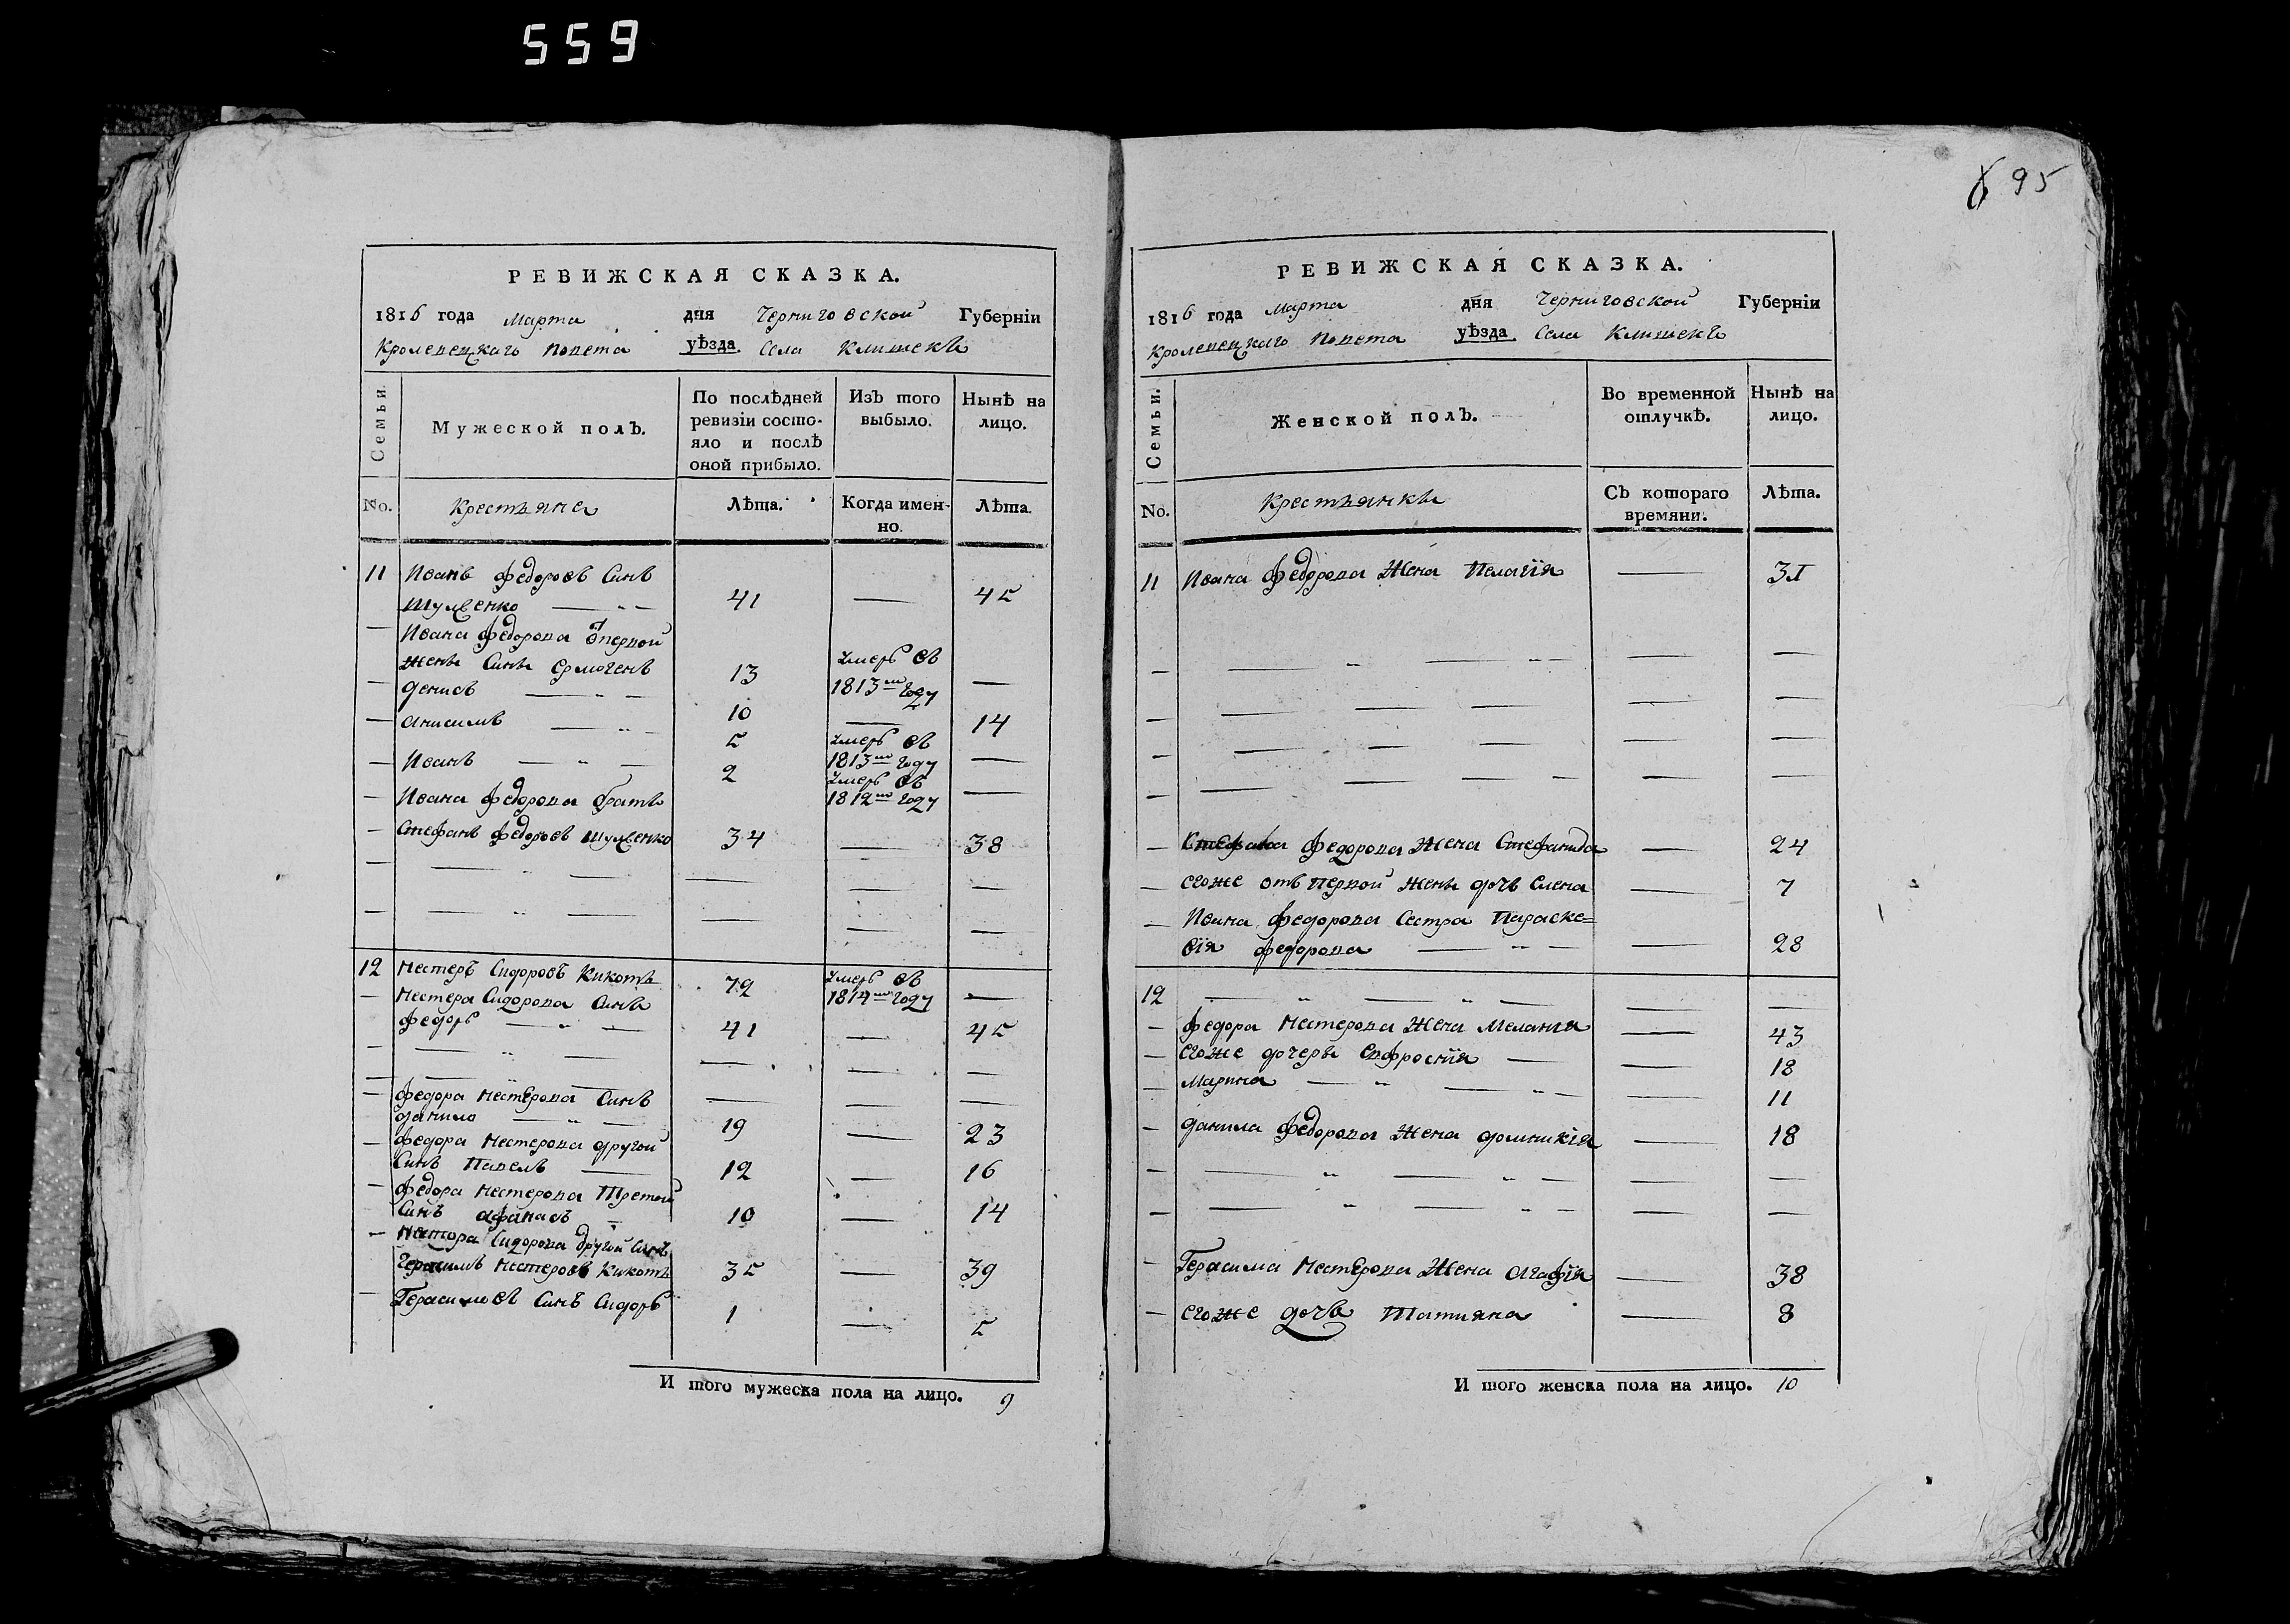 559
95
РЕВИЖСКАЯ СКАЗКА.
1816 года Марта дня Черниговской Губерніи
Кролевецкаго Повета уѣзда Села Клишекъ
Семьи.
Мужеской полъ.
По послѣдней ревизіи состо-
яло и послѣ
оной прибыло.
Изъ того выбыло.
Нынѣ на лицо.
No. Крестьяне Лѣта. Когда имен-
но. Лѣта.
11 Иванъ Федоровъ Синъ
Шулженко — 41 — 45
— Ивана Федорова от первой
жены Синъ Ермогенъ 13 Умеръ въ 1813м году —
— Денисъ — 10 — 14
— Анисимъ — 5 Умеръ въ 1813м году —
— Иванъ — 2 Умеръ въ 1812м году —
— Ивана Федорова братъ
— Стефанъ Федоровъ Шулженко 34 — 38
12 Нестеръ Сидоровъ Кикоть 72 Умеръ въ 1814м году —
— Нестера Сидорова Синъ
Федоръ — 41 — 45
— Федора Нестерова Синъ
Данило — 19 — 23
— Федора Нестерова другой
Синъ Павелъ — 12 — 16
— Федора Нестерова Третой
Синъ Афанасъ — 10 — 14
— Нестора Сидорова другой Синъ
Герасимъ Нестеровъ Кикоть 35 — 39
— Герасимовъ Синъ Сидоръ 1 — 5
И того мужеска пола на лицо. 9
РЕВИЖСКАЯ СКАЗКА.
1816 года Марта дня Черниговской Губерніи
Кролевецкаго Повета уѣзда Села Клишекъ
Семьи.
Женской полъ.
Во временной отлучкѣ.
Нынѣ на лицо.
No. Крестьянки Съ котораго времяни. Лѣта.
11 Ивана Федорова Жена Пелагія —
— Стефана Федорова Жена Стефанида — 24
— Егоже отъ первой жены дочь Елена — 7
— Ивана Федорова Сестра Параске=
вія Федорова — 28
12 —
— Федора Нестерова Жена Мелания — 43
— Егоже дочеры Евфроснія — 18
— Марина — 11
— Данила Федорова Жена Домникія — 18
— Герасима Нестерова Жена Агафія — 38
— Егоже дочь Татияна — 8
И того женска пола на лицо. 10